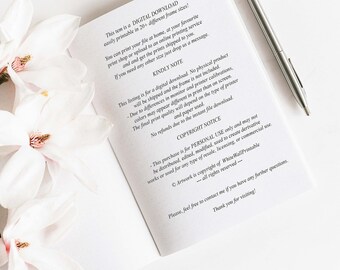 This item is a DIGITAL DOWNLOAD
easily printable in 20+ different frame sizes!
You can print your file at home, at your favourite
print shop or upload to an online printing service
and get the prints shipped to you.
If you need any other size just drop us a message.
KINDLY NOTE
This listing is for a digital download. No physical product
will be shipped and the frame is not included.
- Due to differences in monitor and printer calibrations,
colors may appear different in print than on screen.
The final print quality will depend on the type of printer
and paper used.
No refunds due to the instant file download.
COPYRIGHT NOTICE
- This purchase is for PERSONAL USE only and may not
be distributed, edited, modified, used to create derivative
works or used for any type of resale, licensing, or commercial use
© Artwork is copyright of WhiteWallPrintable
— all rights reserved —
Please, feel free to contact me if you have any further questions.
Thank you for visiting!